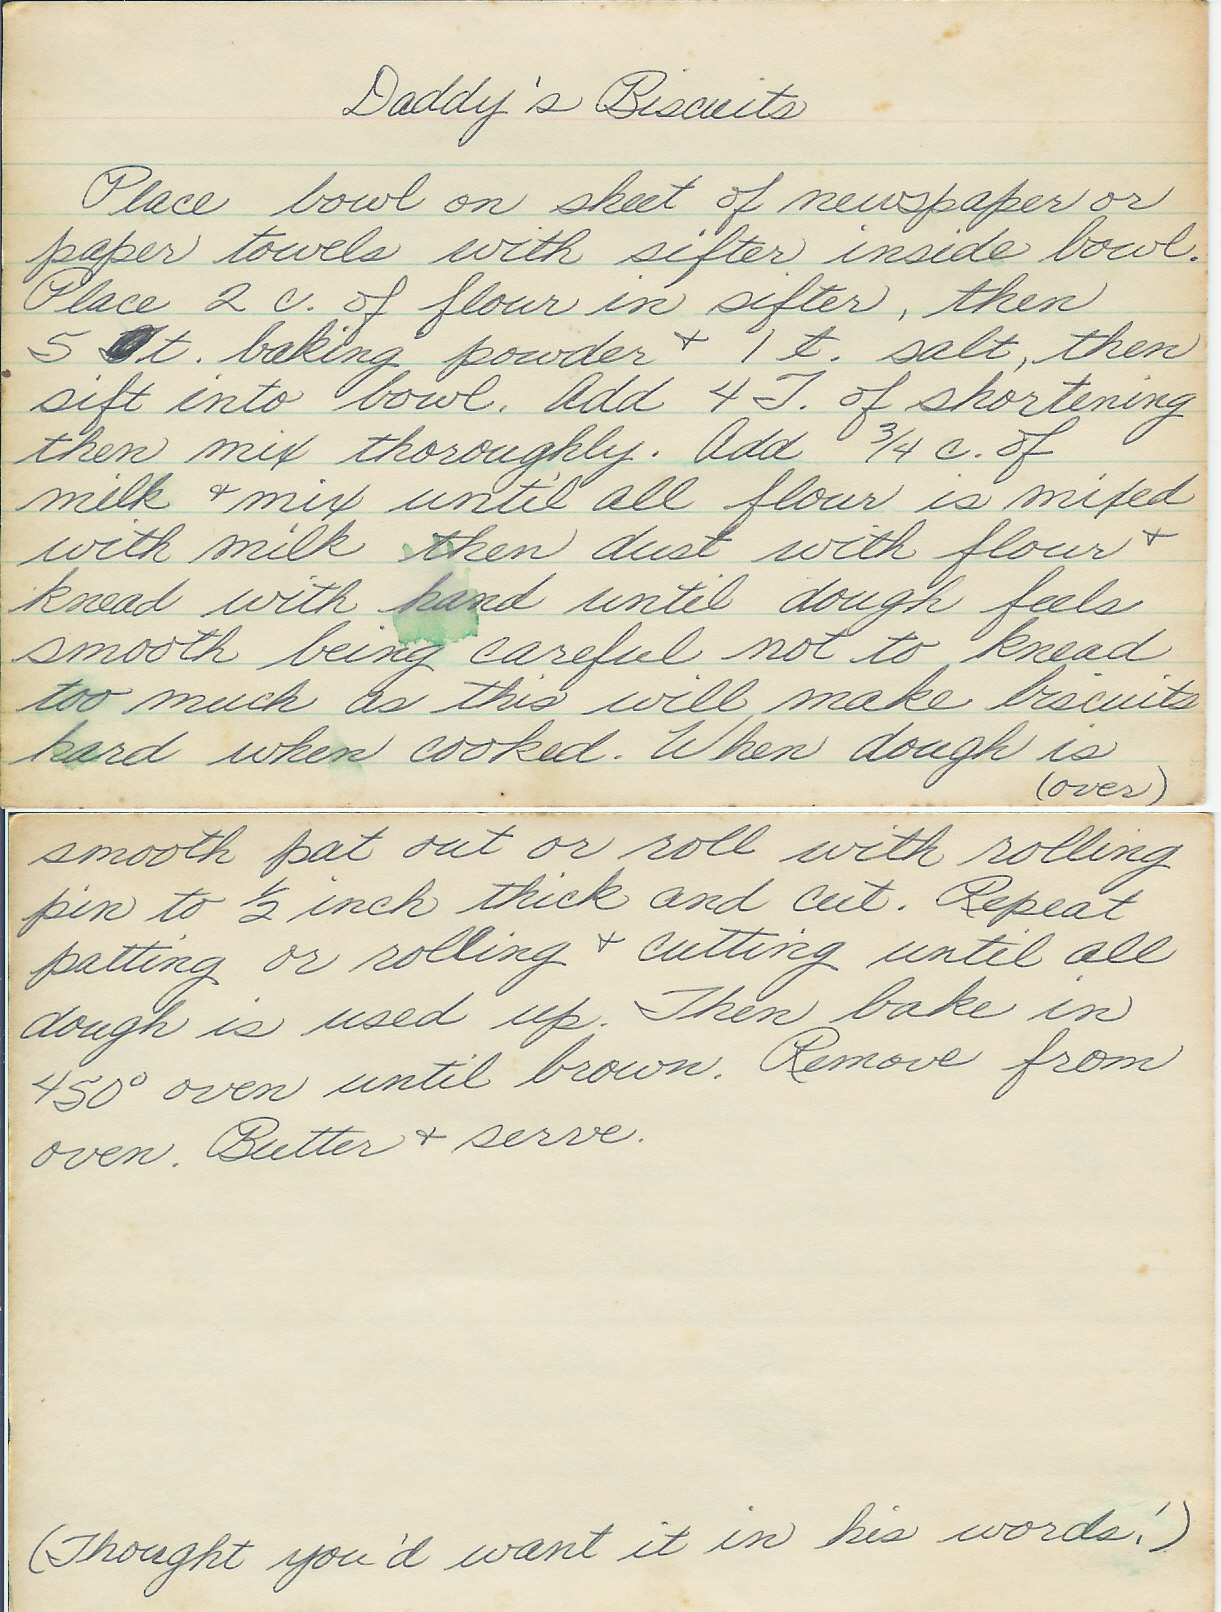 Daddy's Biscuits
Place bowl on sheet of newspaper or
paper towels with sifter inside bowl.
Place 2 c. of flour in sifter, then
5 t. baking powder & 1 t. salt, then
sift into bowl. Add 4 T. of shortening
then mix thoroughly. Add 3/4 c. of
milk & mix until all flour is mixed
with milk then dust with flour &
knead with hand until dough feels
smooth being careful not to knead
too much as this will make biscuits
hard when cooked. When dough is
(over)
smooth pat out or roll with rolling
pin to 1/2 inch thick and cut. Repeat
patting or rolling & cutting until all
dough is used up. Then bake in
450° oven until brown. Remove from
oven. Butter & serve.
(Thought you'd want it in his words!)